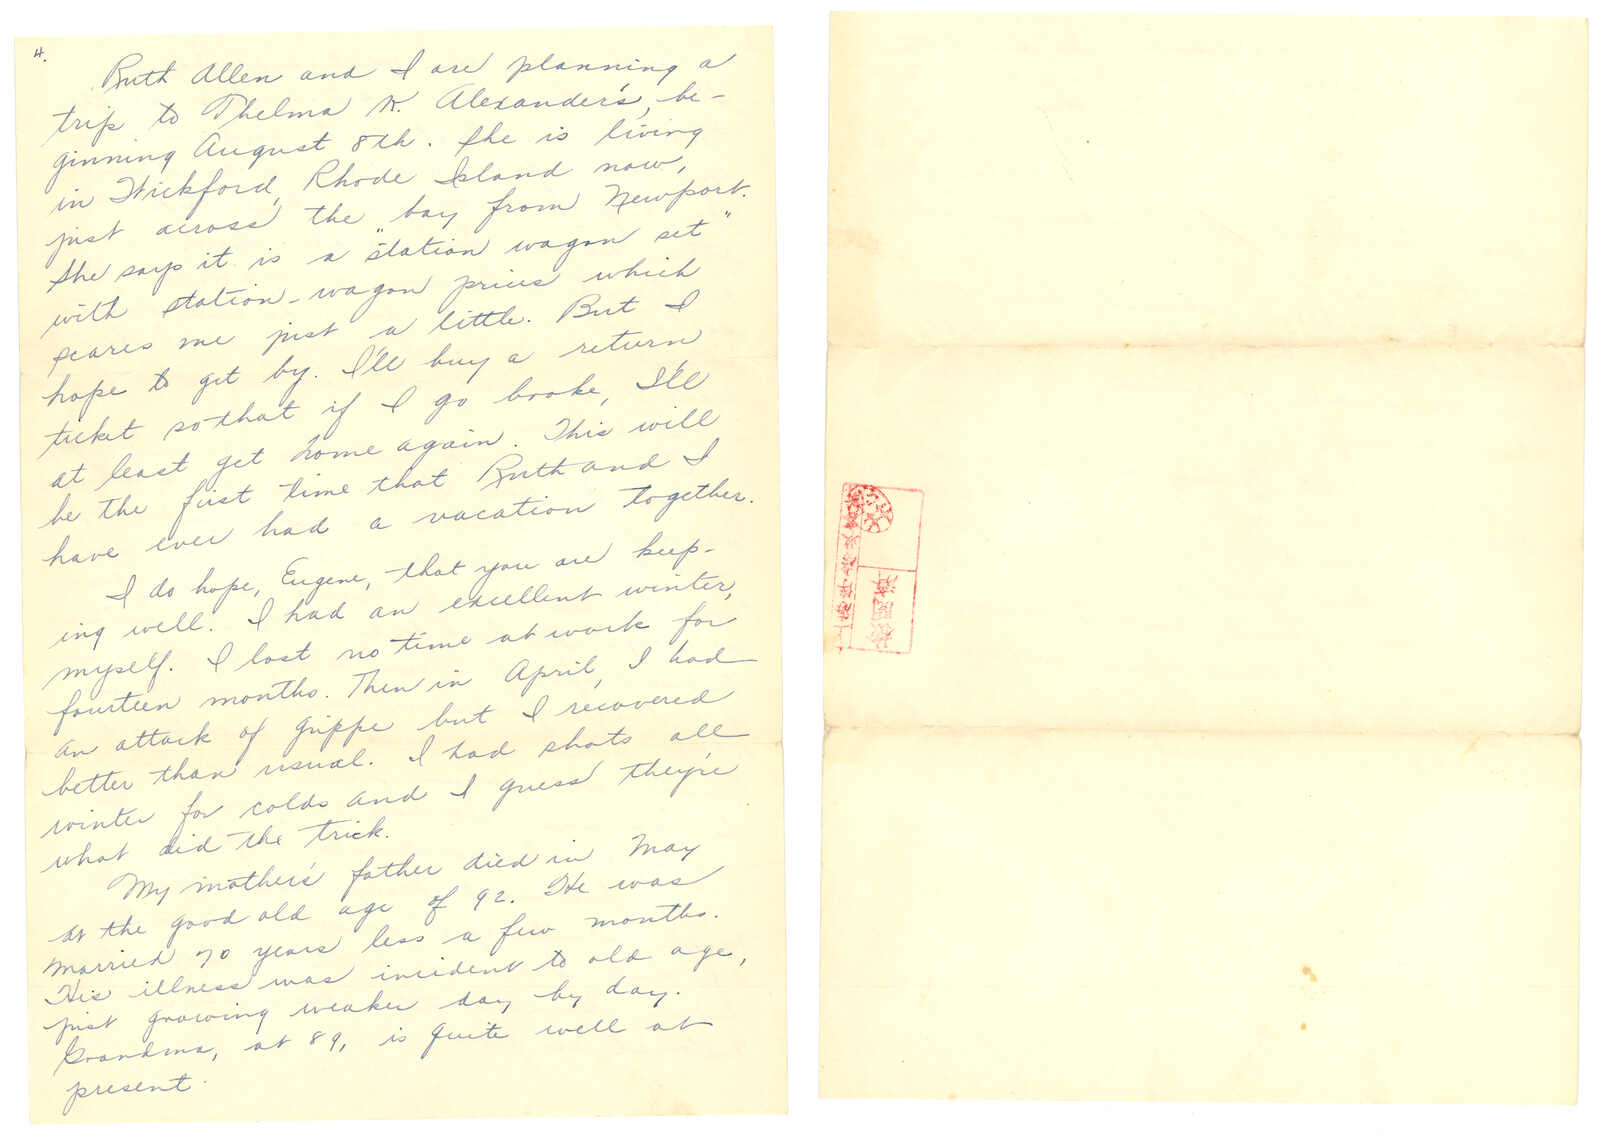 4.
Ruth Allen and I are planning a
trip to Thelma K. Alexander's, be-
ginning August 8th. She is living
in Wickford, Rhode Island now,
just across the bay from Newport.
She says it is a "station wagon set"
with station-wagon prices which
scares me just a little. But I
hope to get by. I'll buy a return
ticket so that if I go broke, I'll
at least get home again. This will
be the first time that Ruth and I
have ever had a vacation together.
I do hope, Eugene, that you are keep-
ing well. I had an excellent winter,
myself. I lost no time at work for
fourteen months. Then in April, I had
an attack of grippe but I recovered
better than usual. I had shots all
winter for colds and I guess they're
what did the trick.
My mother's father died in May
at the good old age of 92. He was
married 70 years less a few months.
His illness was incident to old age,
just growing weaker day by day.
Grandma, at 89, is quite well at
present.